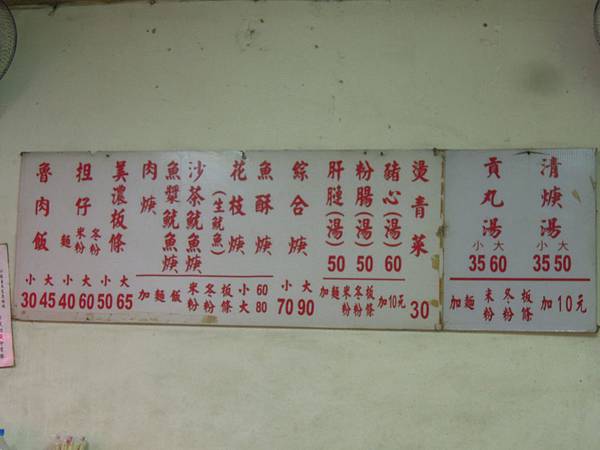 魯肉飯
小 大
30 45
担仔
麵 米粉 冬粉
小 大
40 60
美濃板條
小 大
50 65
肉焿
魚漿魷魚焿
沙茶魷魚焿
花枝焿
(生魷魚)
魚酥焿
加 麵 飯 米粉 冬粉 板條
小 60
大 80
綜合焿
小 大
70 90
肝腱(湯)
50
粉腸(湯)
50
豬心(湯)
60
加麵 米粉 冬粉 板條 加10元
燙青菜
30
貢丸湯
小 大
35 60
清焿湯
小 大
35 50
加麵 米粉 冬粉 板條 加10元